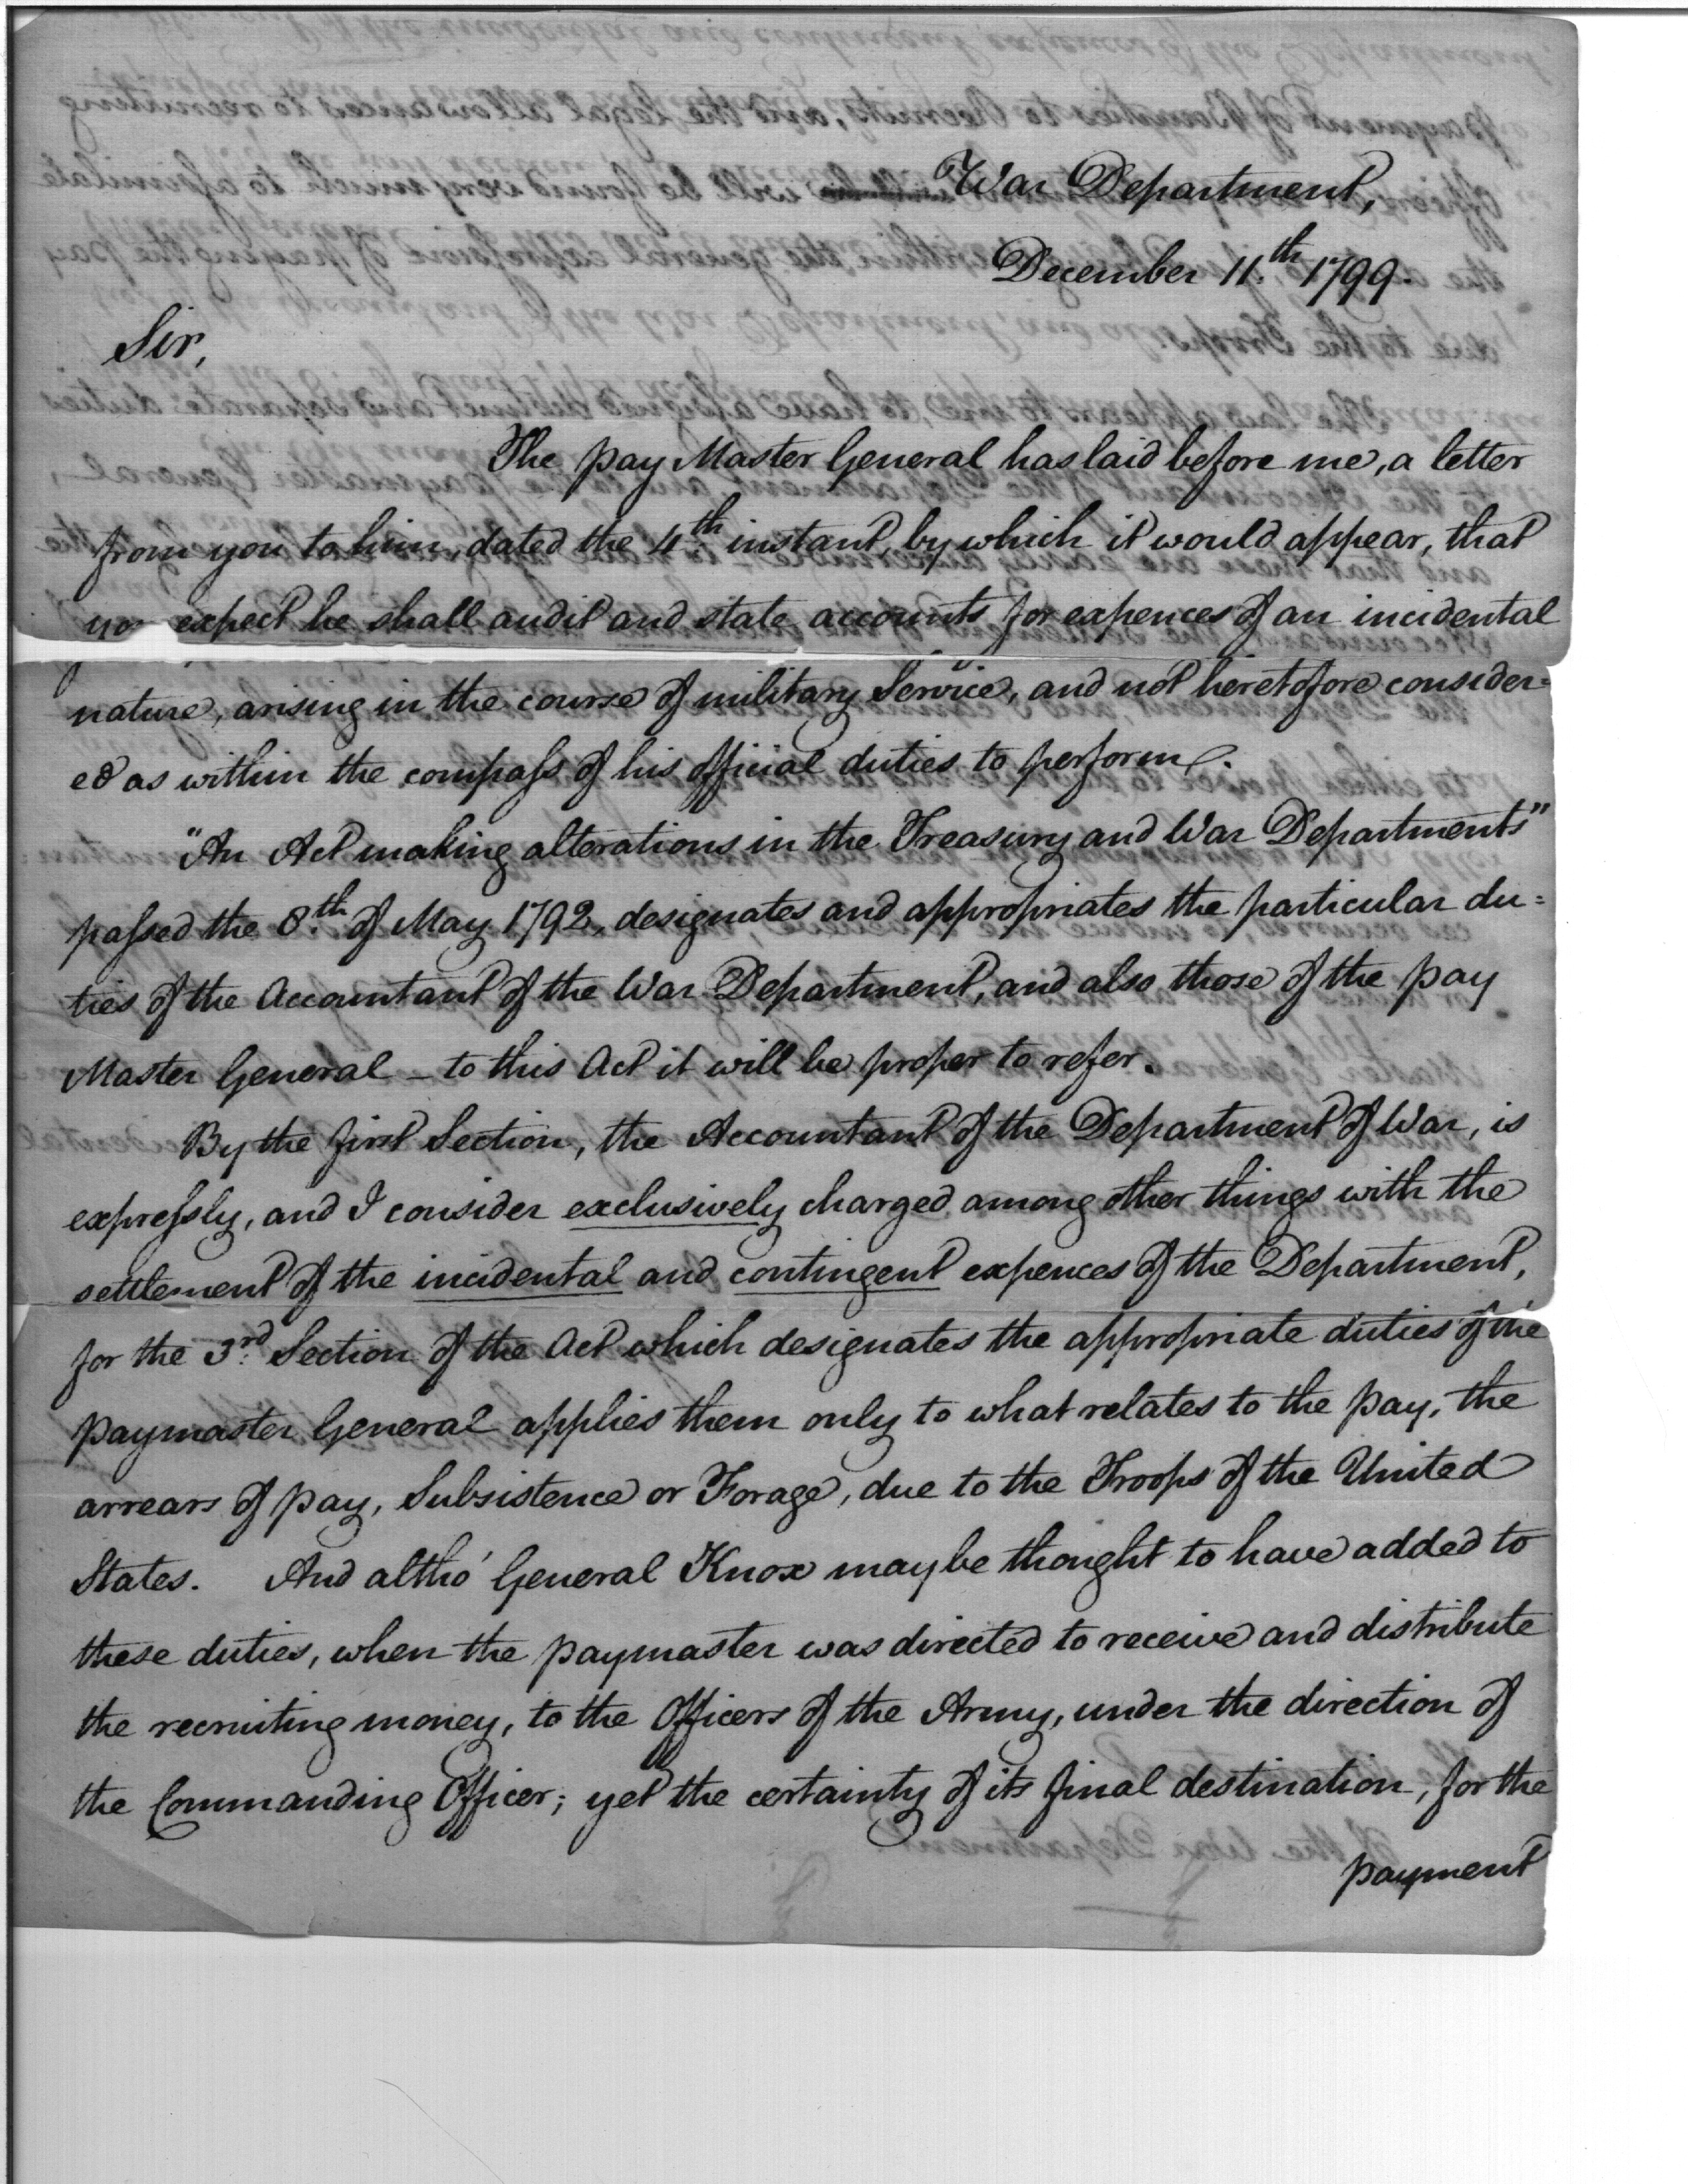 War Department,
December 11.th 1799.
Sir,
The pay Master General has laid before me, a letter
from you to him, dated the 4.th instant, by which it would appear, that
you expect he shall audit and state accounts for expences of an incidental
nature, arising in the course of military Service, and not heretofore consider=
ed as within the compass of his official duties to perform.
"An Act making alterations in the Treasury and War Departments"
passed the 8.th of May 1792, designates and appropriates the particular du=
ties of the Accountant of the War Department, and also those of the pay
Master General – to this Act it will be proper to refer.
By the first Section, the Accountant of the Department of War, is
expressly, and I consider exclusively charged among other things with the
settlement of the incidental and contingent expences of the Department,
for the 3.rd Section of the Act which designates the appropriate duties of the
paymaster General applies them only to what relates to the pay, the
arrears of pay, Subsistence or Forage, due to the Troops of the United
States. And altho' General Knox may be thought to have added to
these duties, when the paymaster was directed to receive and distribute
the recruiting money, to the Officers of the Army, under the direction of
the Commanding Officer; yet the certainty of its final destination, for the
payment